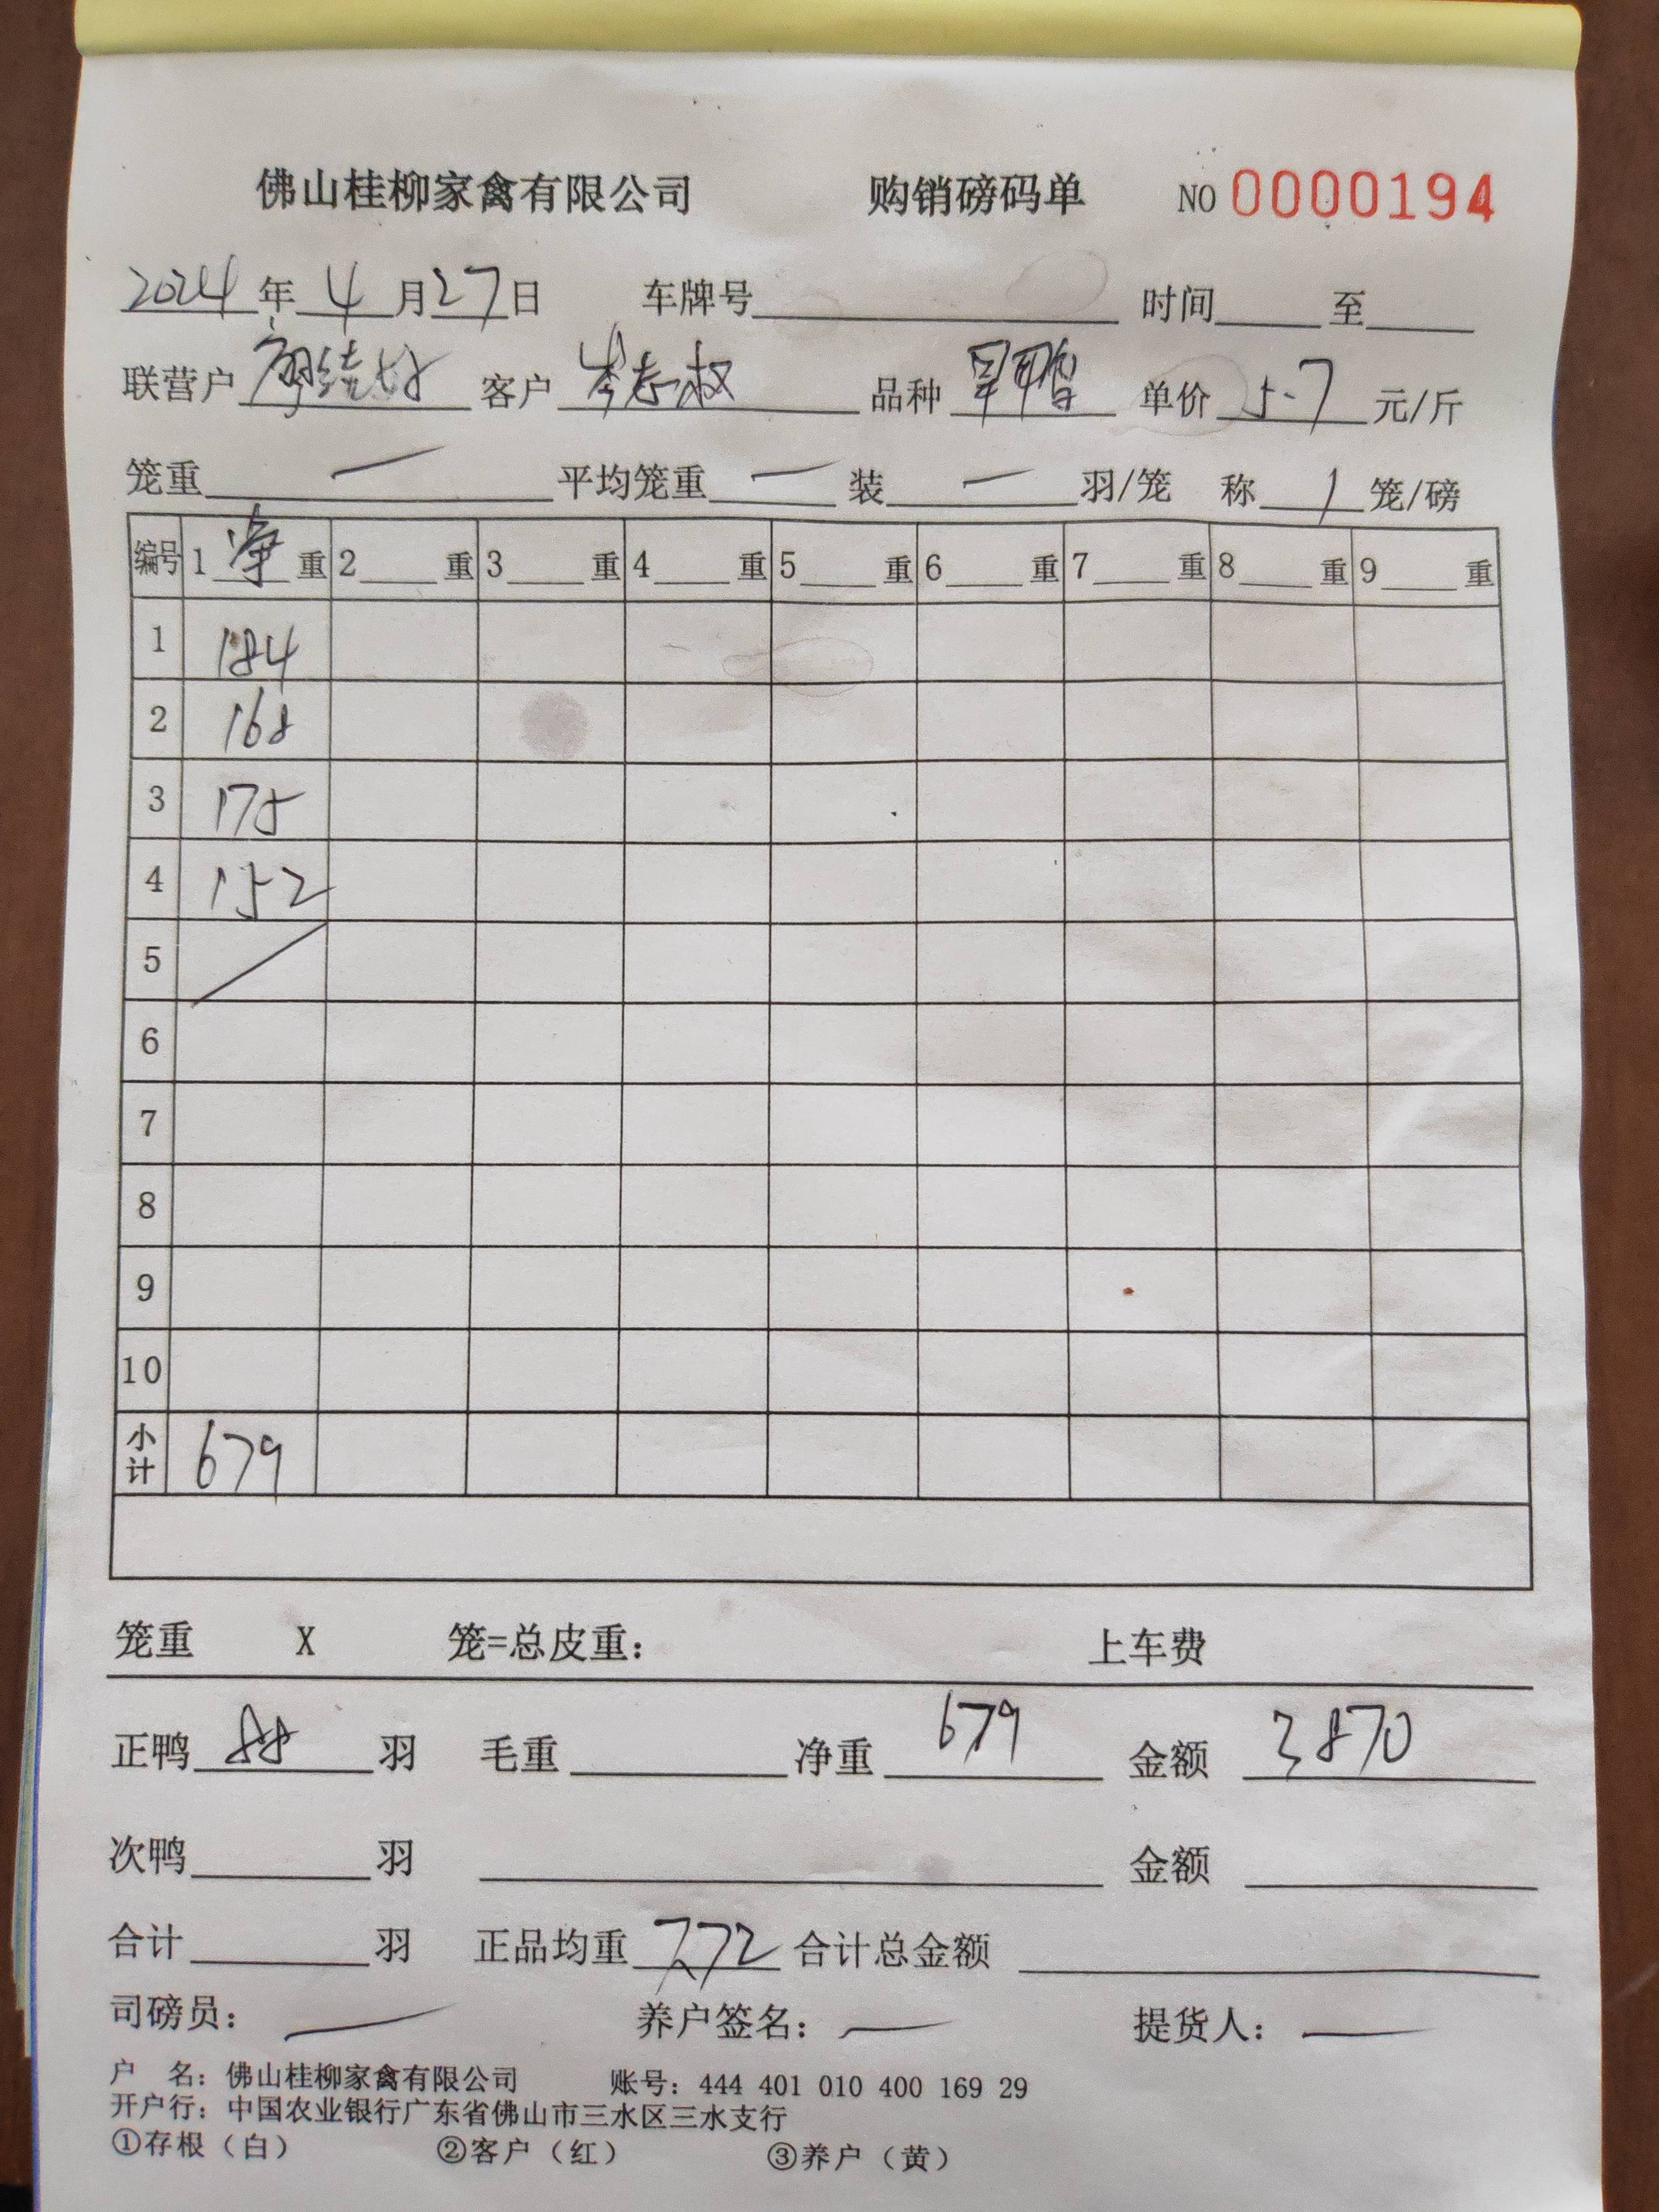 佛山桂柳家禽有限公司 购销磅码单 NO 0000194
2024年4月27日 车牌号 时间 至
联营户 客户 岑志权 品种 旱鸭 单价 5.7 元/斤
笼重 — 平均笼重 — 装 — 羽/笼 称 1 笼/磅
编号 1 净 重 2 重 3 重 4 重 5 重 6 重 7 重 8 重 9 重
1 184
2 168
3 175
4 152
5
6
7
8
9
10
小计 679
笼重 X 笼=总皮重： 上车费
正鸭 88 羽 毛重 净重 679 金额 3870
次鸭 羽 金额
合计 羽 正品均重 7.72 合计总金额
司磅员： — 养户签名： — 提货人： —
户 名：佛山桂柳家禽有限公司 账号：444 401 010 400 169 29
开户行：中国农业银行广东省佛山市三水区三水支行
①存根（白） ②客户（红） ③养户（黄）